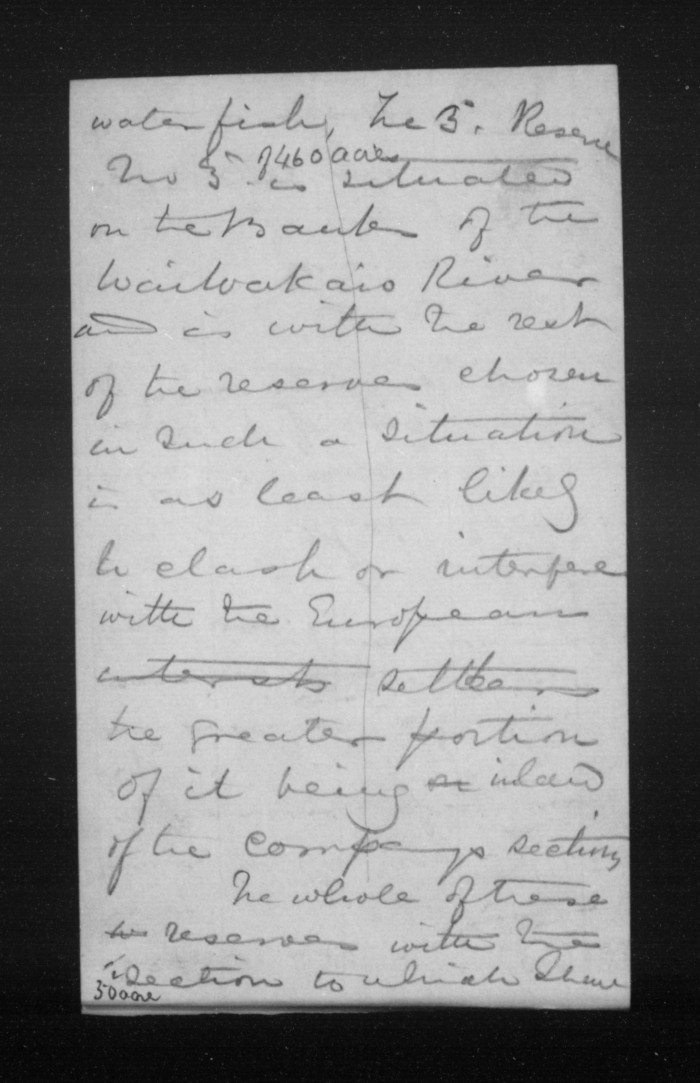 water fish, The 5. Reserve
of 460 acres
No 5 is situated
on the Banks of the
Waiwakaio River
and is with the rest
of the reserves chosen
in such a situation
is as least likely
to clash or interfere
with the European
interests settlers
the greater portion
of it being inland
of the Companys sections
The whole of these
reserves with the
section to which I have
50 acre